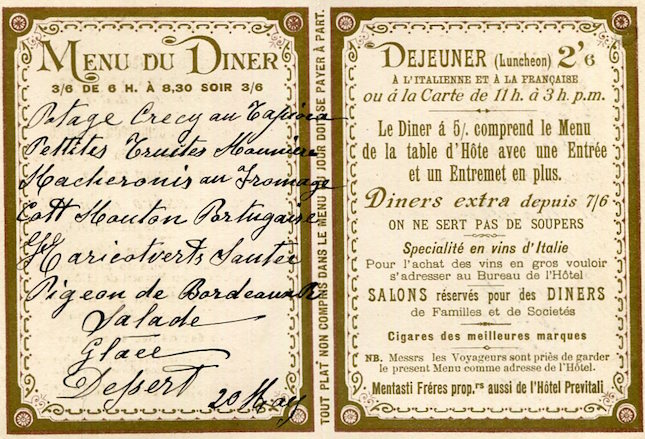 MENU DU DINER
3/6 DE 6 H. À 8,30 SOIR 3/6
Potage Crecy au Tapioca
Pettites Truites Meuniere
Macheronis au Fromage
Cott Mouton Portugaise
Haricotverts Sautée
Pigeon de Bordeaux R
Salade
Glace
Dessert
20 May
TOUT PLAT NON COMPRIS DANS LE MENU DU JOUR DOIT SE PAYER À PART.
DEJEUNER (Luncheon) 2'6
A L'ITALIENNE ET À LA FRANÇAISE
ou á la Carte de 11 h. à 3 h. p.m.
Le Diner á 5/. comprend le Menu
de la table d'Hôte avec une Entrée
et un Entremet en plus.
Diners extra depuis 7/6
ON NE SERT PAS DE SOUPERS
Specialité en vins d'Italie
Pour l'achat des vins en gros vouloir
s'adresser au Bureau de l'Hôtel
SALONS réservés pour des DINERS
de Familles et de Societés
Cigares des meilleures marques
NB. Messrs les Voyageurs sont priès de garder
le present Menu comme adresse de l'Hôtel.
Mentasti Fréres prop.rs aussi de l'Hôtel Previtali